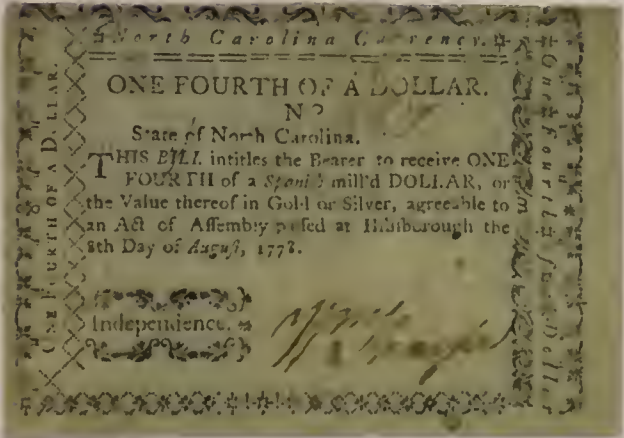 North Carolina Currency.
ONE FOURTH OF A DOLLAR.
No
State of North Carolina.
THIS BILL intitles the Bearer to receive ONE
FOURTH of a Spanish mill'd DOLLAR, or
the Value thereof in Gold or Silver, agreeable to
an Act of Assembly passed at Hillsborough the
8th Day of August, 1778.
Independence.
ONE FOURTH OF A DOLLAR.
One Fourth of a Dollar